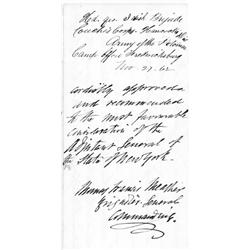 Hd. Qrs. Irish Brigade
Couch's Corps. Hancock's
Army of the Potomac
Camp Opp. Fredericksburg
Nov. 27. 62.
Cordially approved
and recommended
to the most favourable
consideration of the
Adjutant General of
the State of New York.
Thomas Francis Meagher
Brigadier General
Commanding.